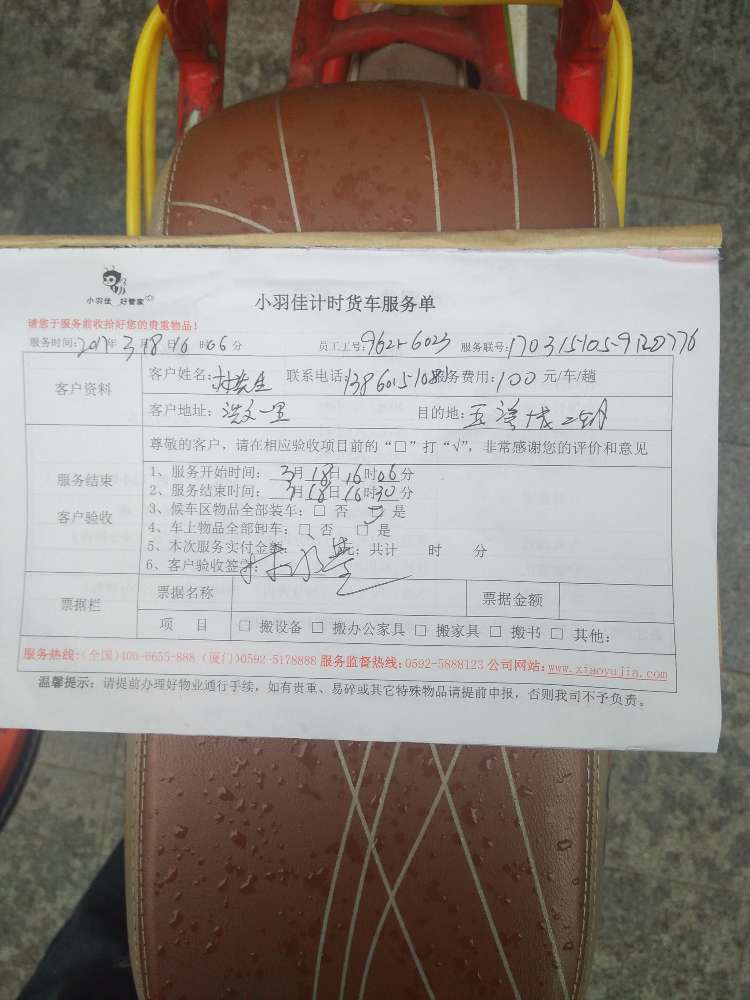 小羽佳 好管家
小羽佳计时货车服务单
请您于服务前收拾好您的贵重物品！
服务时间：2017年3月18日16时06分 员工工号：9621-6023 服务联号：170315105-9120776
客户资料
客户姓名：林先生 联系电话： 服务费用：100元/车/趟
客户地址：洪文一里 目的地：
服务结束
客户验收
尊敬的客户，请在相应验收项目前的“□”打“√”，非常感谢您的评价和意见
1、服务开始时间：3月18日16时06分
2、服务结束时间：3月18日16时30分
3、候车区物品全部装车：□ 否 □ 是
4、车上物品全部卸车：□ 否 □ 是
5、本次服务实付金额： 元；共计 时 分
6、客户验收签字：
票据栏
票据名称 票据金额
项 目 □ 搬设备 □ 搬办公家具 □ 搬家具 □ 搬书 □ 其他：
服务热线：(全国)400-6655-888 (厦门)0592-5178888 服务监督热线：0592-5888123 公司网站：www.xiaoyujia.com
温馨提示：请提前办理好物业通行手续，如有贵重、易碎或其它特殊物品请提前申报，否则我司不予负责。